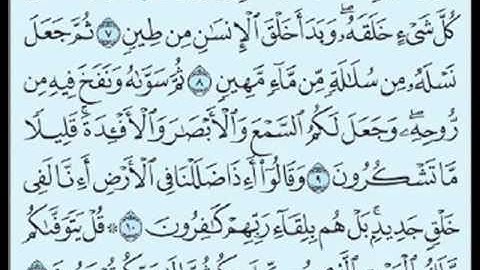 كُلَّ شَىْءٍ خَلَقَهُۥ ۖ وَبَدَأَ خَلْقَ ٱلْإِنسَـٰنِ مِن طِينٍ ٧ ثُمَّ جَعَلَ
نَسْلَهُۥ مِن سُلَـٰلَةٍ مِّن مَّآءٍ مَّهِينٍ ٨ ثُمَّ سَوَّىٰهُ وَنَفَخَ فِيهِ مِن
رُّوحِهِۦ ۖ وَجَعَلَ لَكُمُ ٱلسَّمْعَ وَٱلْأَبْصَـٰرَ وَٱلْأَفْـِٔدَةَ ۚ قَلِيلًا
مَّا تَشْكُرُونَ ٩ وَقَالُوٓا۟ أَءِذَا ضَلَلْنَا فِى ٱلْأَرْضِ أَءِنَّا لَفِى
خَلْقٍ جَدِيدٍۭ ۚ بَلْ هُم بِلِقَآءِ رَبِّهِمْ كَـٰفِرُونَ ١٠ ۞ قُلْ يَتَوَفَّىٰكُم